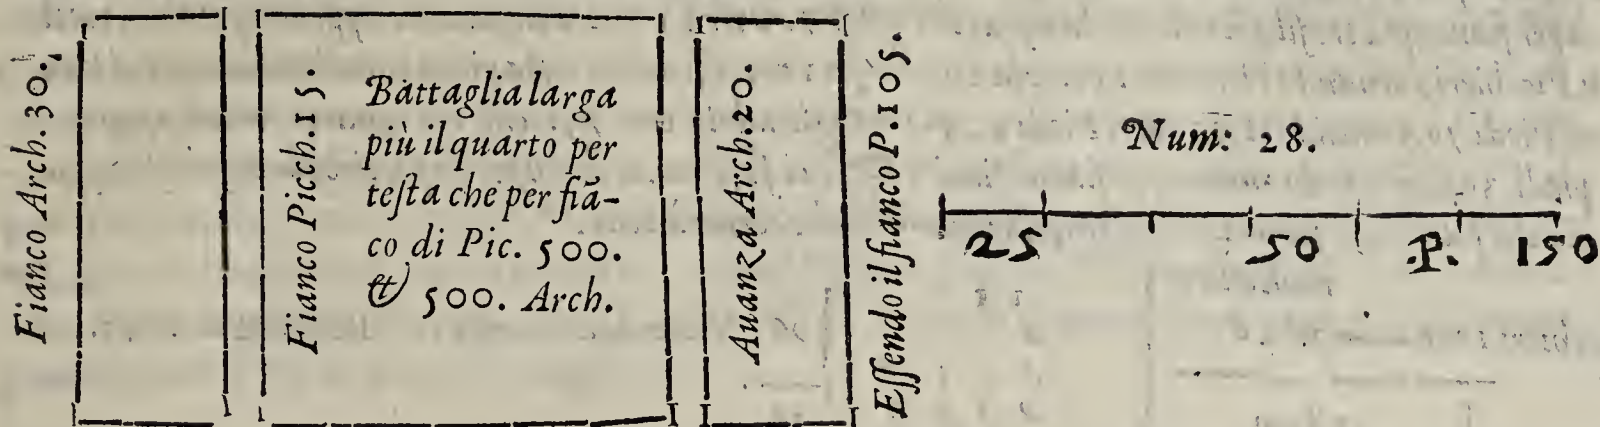 Fianco Arch. 30.
Fianco Picch. 15.
Battaglia larga
più il quarto per
teſta che per fiã-
co di Pic. 500.
& 500. Arch.
Auanza Arch. 20.
Eſſendo il fianco P. 105.
Num: 28.
25 50 .P. 150